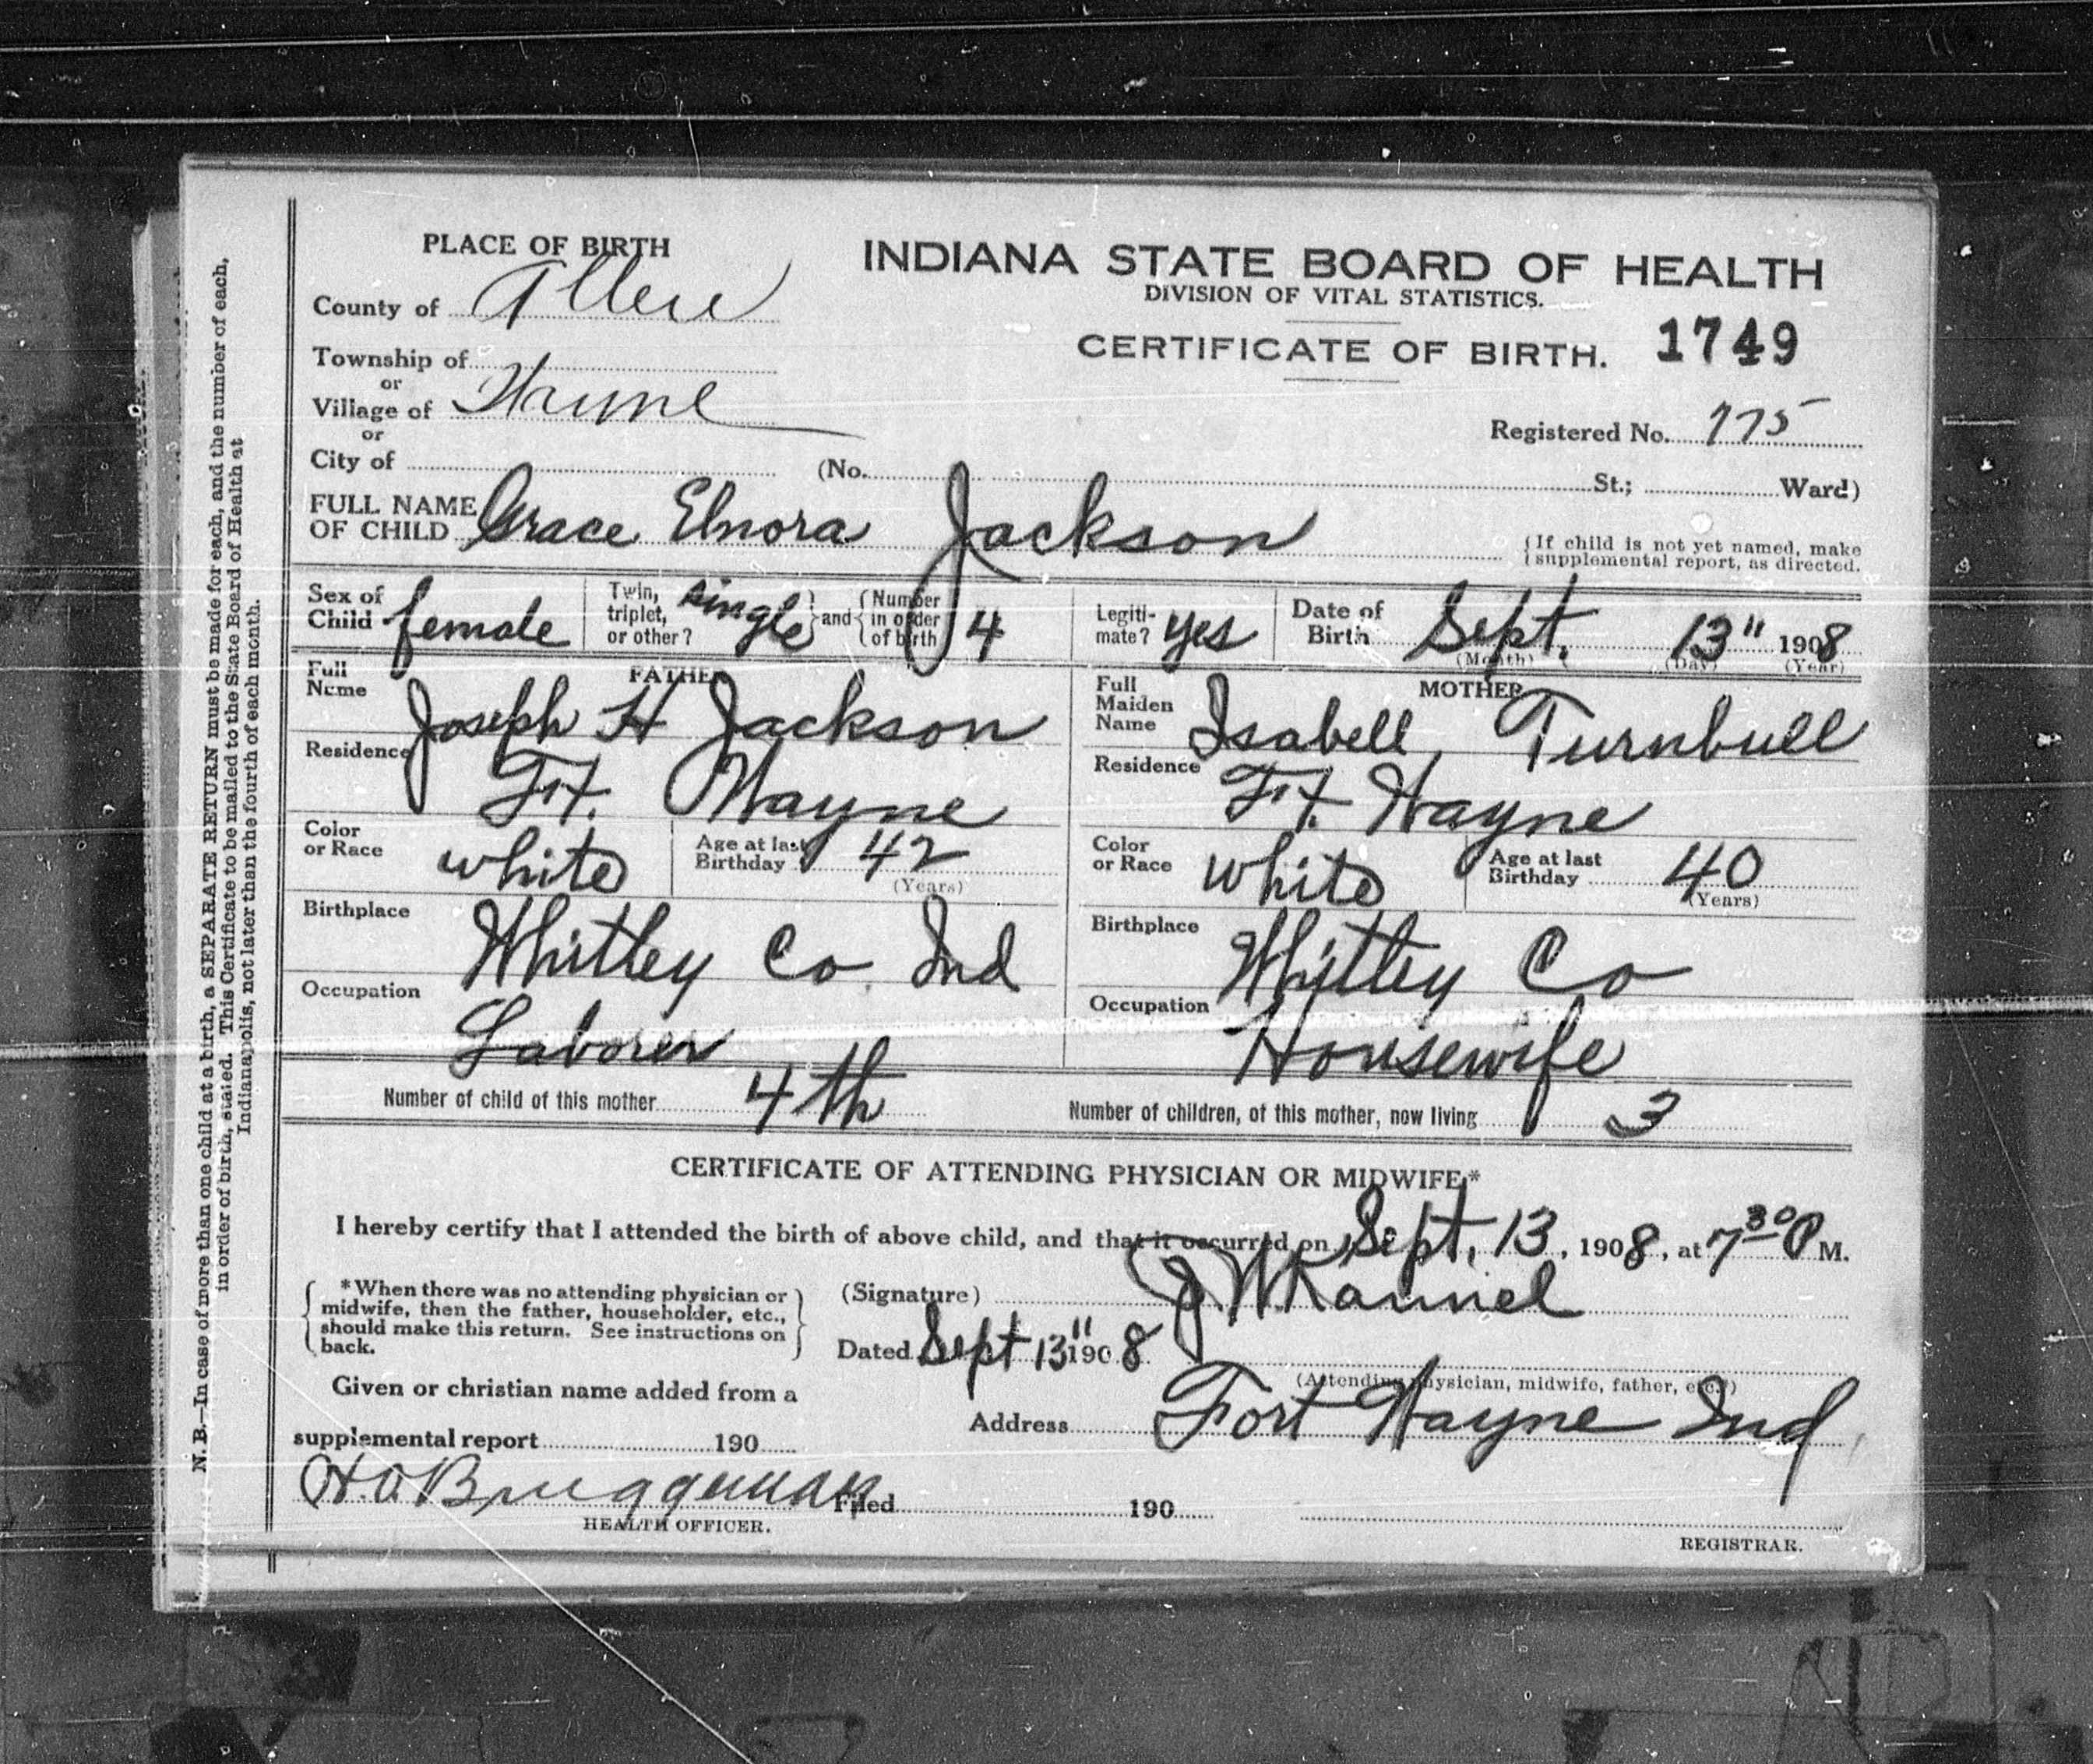 PLACE OF BIRTH
County of Allen
Township of
or
Village of Wayne
or
City of
INDIANA STATE BOARD OF HEALTH
DIVISION OF VITAL STATISTICS.
CERTIFICATE OF BIRTH. 1749
Registered No. 775
(No. St.; Ward)
FULL NAME
OF CHILD Grace Elnora Jackson
{If child is not yet named, make
supplemental report, as directed.
Sex of
Child female
Twin,
triplet,
or other? single } and { Number
in order
of birth 4
Legiti-
mate? yes
Date of
Birth Sept. 13" 1908
(Month) (Day) (Year)
FATHER
Full
Name Joseph H Jackson
Residence Ft. Wayne
Color
or Race white
Age at last
Birthday 42
(Years)
Birthplace Whitley Co. Ind
Occupation Laborer
MOTHER
Full
Maiden
Name Isabell Turnbull
Residence Ft. Wayne
Color
or Race white
Age at last
Birthday 40
(Years)
Birthplace Whitley Co
Occupation Housewife
Number of child of this mother 4th
Number of children, of this mother, now living 3
CERTIFICATE OF ATTENDING PHYSICIAN OR MIDWIFE*
I hereby certify that I attended the birth of above child, and that it occurred on Sept. 13, 1908, at 7 30 P M.
{ *When there was no attending physician or
midwife, then the father, householder, etc.,
should make this return. See instructions on
back. }
(Signature) J. W. Kannel
Dated Sept 13" 1908
(Attending physician, midwife, father, etc.*)
Address Fort Wayne Ind
Given or christian name added from a
supplemental report 190
H. O. Bruggeman
HEALTH OFFICER.
Filed 190
REGISTRAR.
N. B.—In case of more than one child at a birth, a SEPARATE RETURN must be made for each, and the number of each,
in order of birth, stated. This Certificate to be mailed to the State Board of Health at
Indianapolis, not later than the fourth of each month.